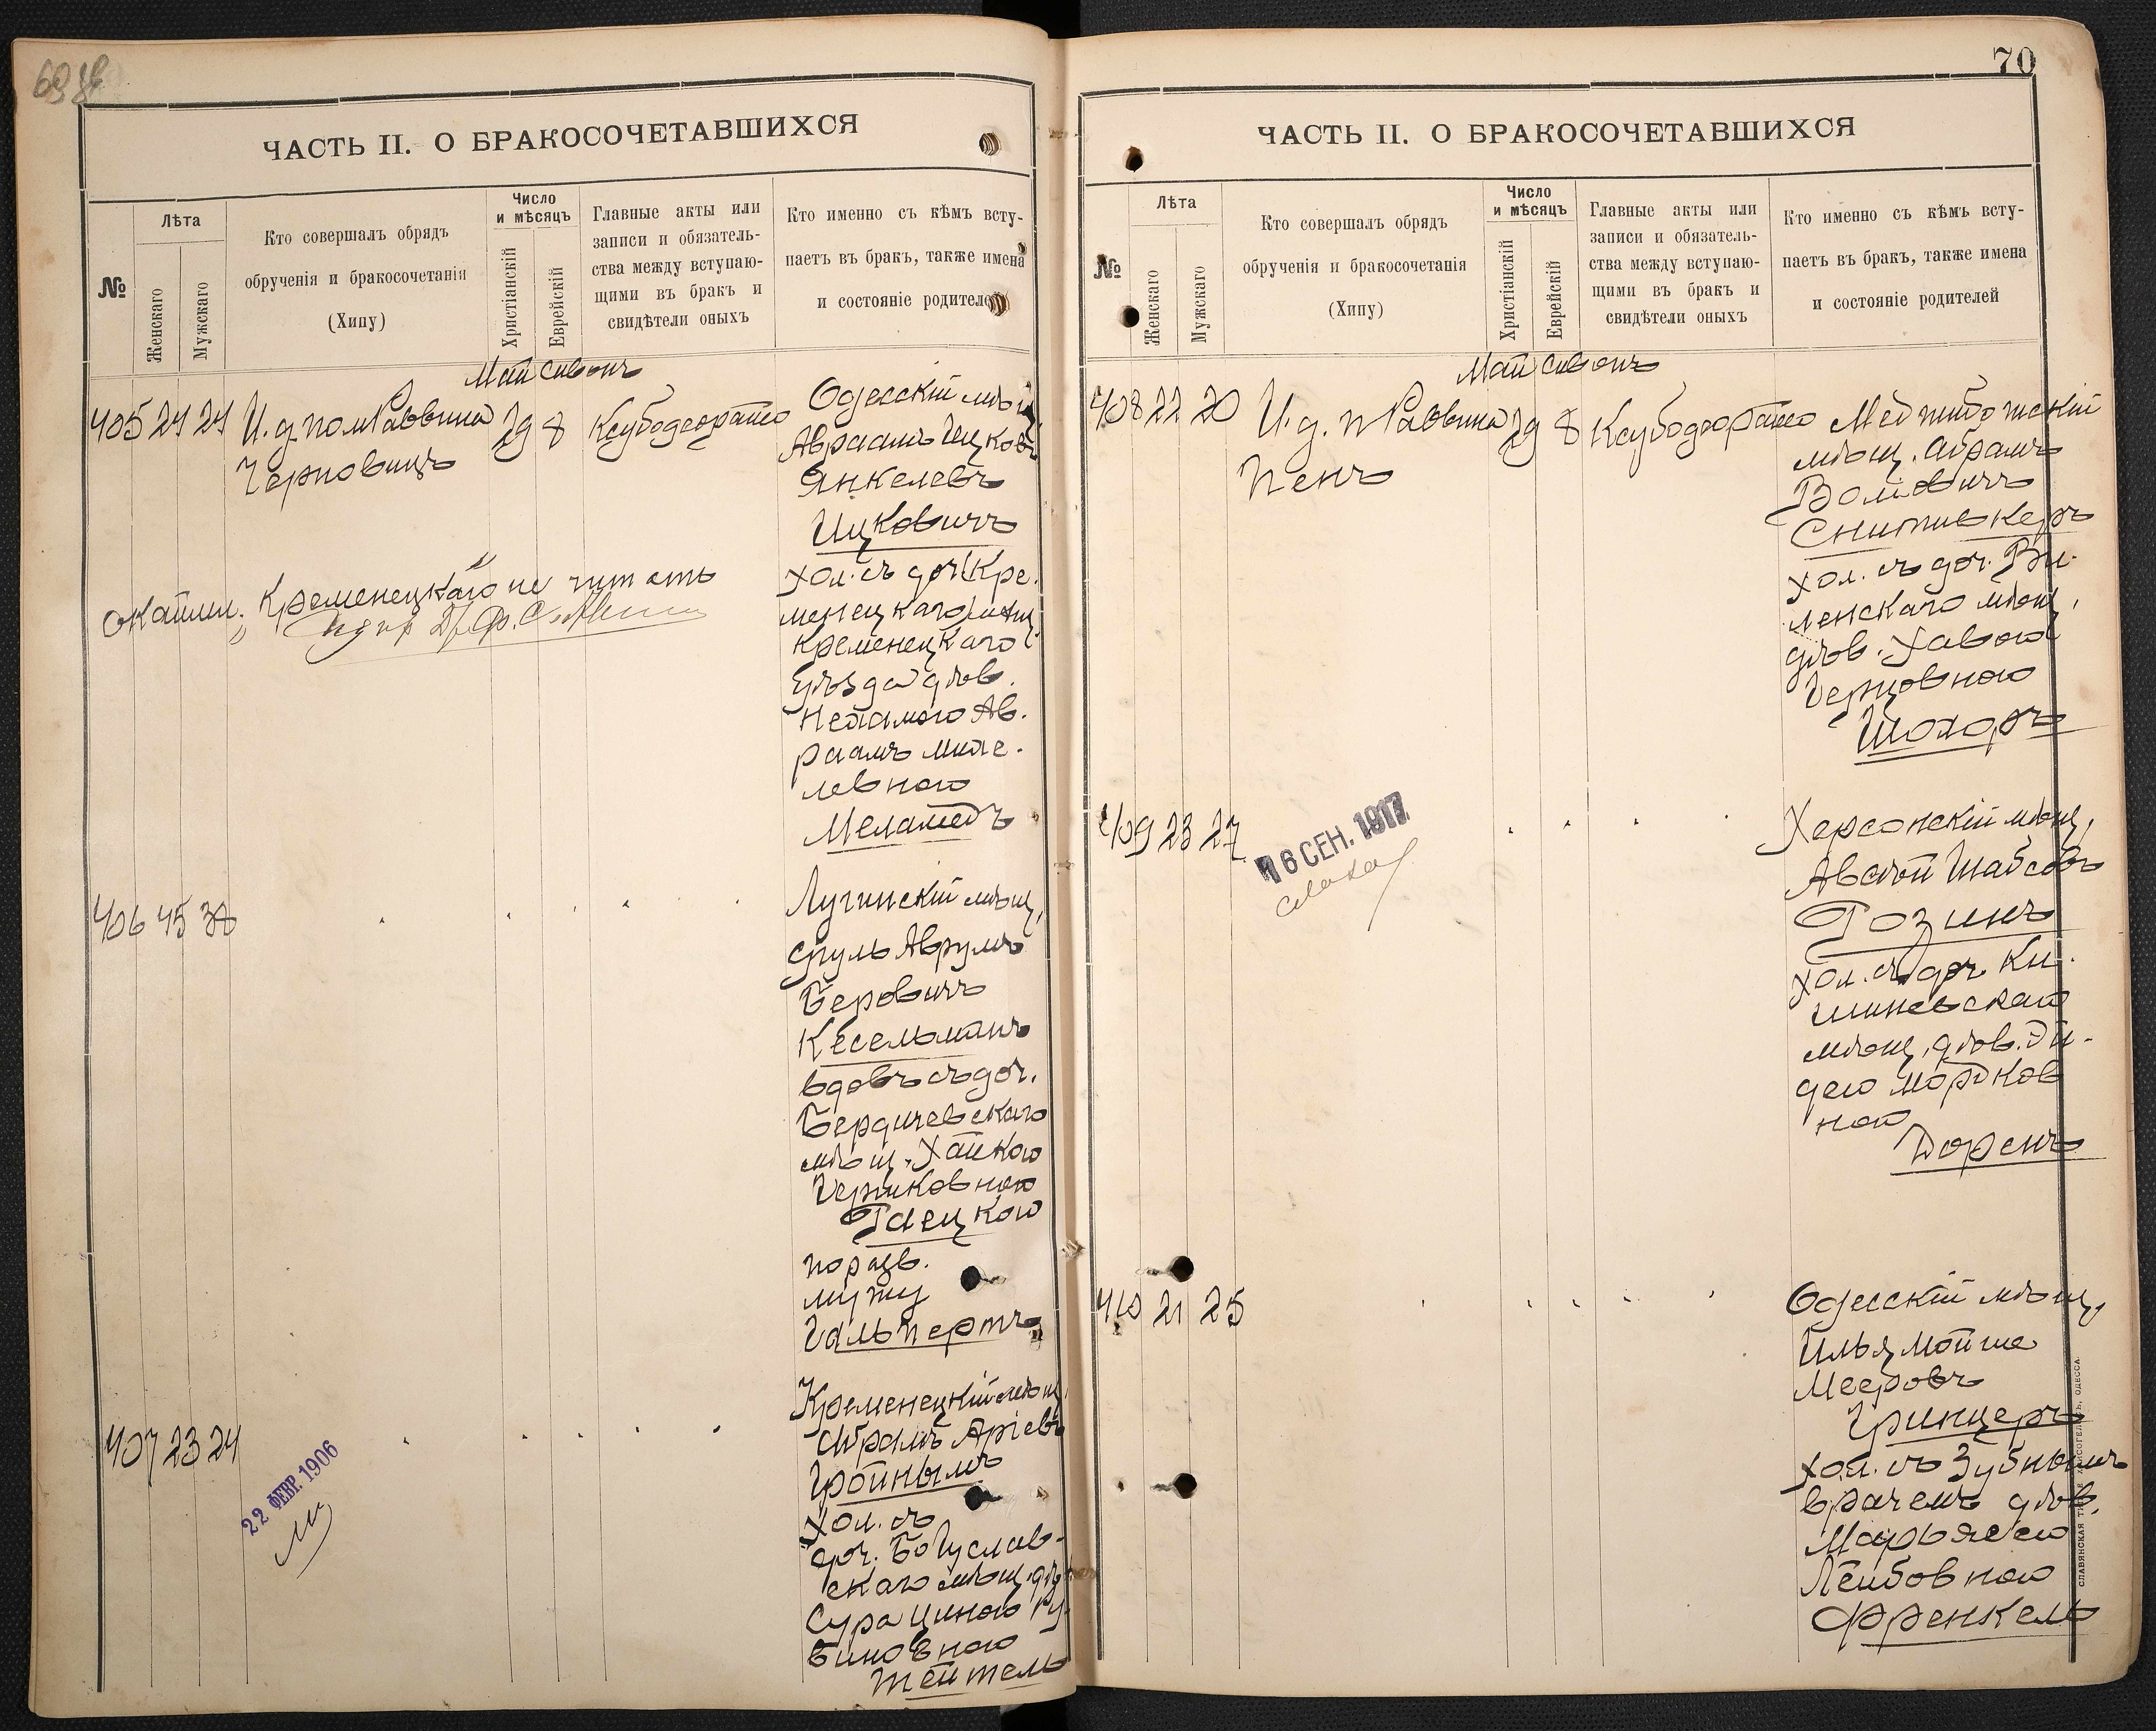 69 об
ЧАСТЬ II. О БРАКОСОЧЕТАВШИХСЯ
№
Лѣта
Женскаго
Мужскаго
Кто совершалъ обрядъ
обрученія и бракосочетанія
(Хипу)
Число
и мѣсяцъ
Христіанскій
Еврейскій
Главные акты или
записи и обязатель-
ства между вступаю-
щими въ бракъ и
свидѣтели оныхъ
Кто именно съ кѣмъ всту-
паетъ въ бракъ, также имена
и состояніе родителей
Май Сивонъ
405 24 24 И. д. пом Раввина 29 8
Черновицъ
Одесскій мѣщ
Авраамъ Ицковъ
Янкелевъ
Ицковичъ
хол. съ доч. (Кре-
менецкаго) мѣщ
Кременецкаго
уѣзда дѣв.
Нехамою Ав-
раамъ
левною
Меламедъ
Кременецкаго не читать
406 45 38
Лугинскій мѣщ,
Сруль Аврумъ
Беровичъ
Кесельманъ
вдовъ съ доч.
Бердичевскаго
мѣщ. Хайкою
Гаецкою
по разв.
мужу
Гальпертъ
407 23 24
22 ФЕВР. 1906
Кременецкій мѣщ,
Абрамъ Аріевъ
Гройнымъ
Хол. съ
доч. Богуслав-
скаго мѣщ. дѣв
Сура Циною Ру-
виновною
Тейтель
70
ЧАСТЬ II. О БРАКОСОЧЕТАВШИХСЯ
№
Лѣта
Женскаго
Мужскаго
Кто совершалъ обрядъ
обрученія и бракосочетанія
(Хипу)
Число
и мѣсяцъ
Христіанскій
Еврейскій
Главные акты или
записи и обязатель-
ства между вступаю-
щими въ бракъ и
свидѣтели оныхъ
Кто именно съ кѣмъ всту-
паетъ въ бракъ, также имена
и состояніе родителей
Май Сивонъ
408 22 20 И. д. п Раввина 29 8
Пенъ
Меджибожскій
мѣщ. Абрамъ
Волковичъ
Снитивкеръ
хол. съ доч. Ви-
ленскаго мѣщ,
дѣв. Хавою
Герцовною
Шохоръ
409 23 27
16 СЕН. 1917
Херсонскій мѣщ,
Авсѣй Шабсовъ
Розинъ
хол. съ доч. Ки-
шиневскаго
мѣщ. дѣв. Эй-
дею Мордков
ной
Доренъ
410 21 25
Одесскій мѣщ,
Илья Мойше
Мееровъ
Гринцеръ
хол. съ Зубнымъ
врачемъ дѣв.
Марьясею
Лейбовною
Френкель